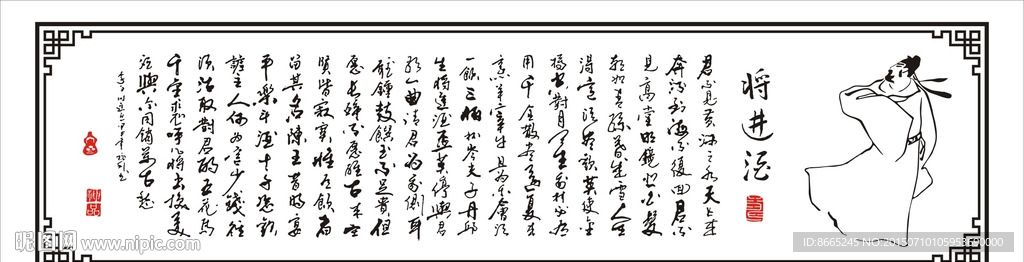 将进酒
君不見黄河之水天上来
奔流到海不復回君不
見高堂明鏡悲白髮
朝如青絲暮成雪人生
得意須尽歡莫使金
樽空對月天生我材必有
用千金散尽還復来
烹羊宰牛且為樂會須
一飲三百杯岑夫子丹邱
生将進酒君莫停與君
歌一曲請君為我側耳
聽鐘鼓饌玉不足貴但
愿長醉不愿醒古来聖
賢皆寂寞惟有飲者
留其名陳王昔時宴
平樂斗酒十千恣歡
謔主人何為言少錢徑
須沽取對君酌五花馬
千金裘呼兒将出換美
酒與尔同銷萬古愁
昵图网 www.nipic.com
ID:8665245 NO:20150710105953690000